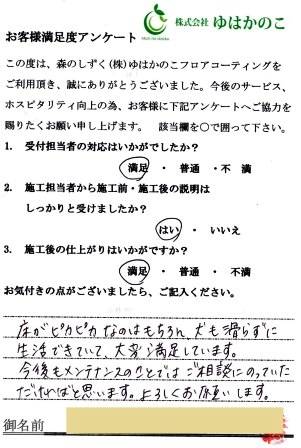 株式会社 ゆはかのこ
お客様満足度アンケート
この度は、森のしずく(株)ゆはかのこフロアコーティングを
ご利用頂き、誠にありがとうございました。今後のサービス、
ホスピタリティ向上の為、お客様に下記アンケートへご協力を
賜りたくお願い申し上げます。 該当欄を○で囲って下さい。
1. 受付担当者の対応はいかがでしたか?
満足 ・ 普通 ・不 満
2. 施工担当者から施工前・施工後の説明は
しっかりと受けましたか?
はい ・ いいえ
3. 施工後の仕上がりはいかがですか?
満足 ・ 普通 ・ 不満
お気付きの点がございましたら、ご記入ください。
床がピカピカなのはもちろん、犬も滑らずに
生活できていて、大変満足しています。
今後もメンテナンスのことではご相談にのっていた
だければと思います。よろしくお願いします。
御名前